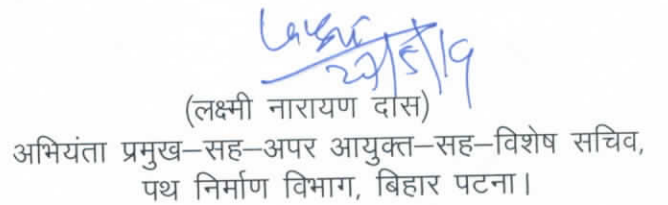 22/5/19
(लक्ष्मी नारायण दास)
अभियंता प्रमुख–सह–अपर आयुक्त–सह–विशेष सचिव,
पथ निर्माण विभाग, बिहार पटना।